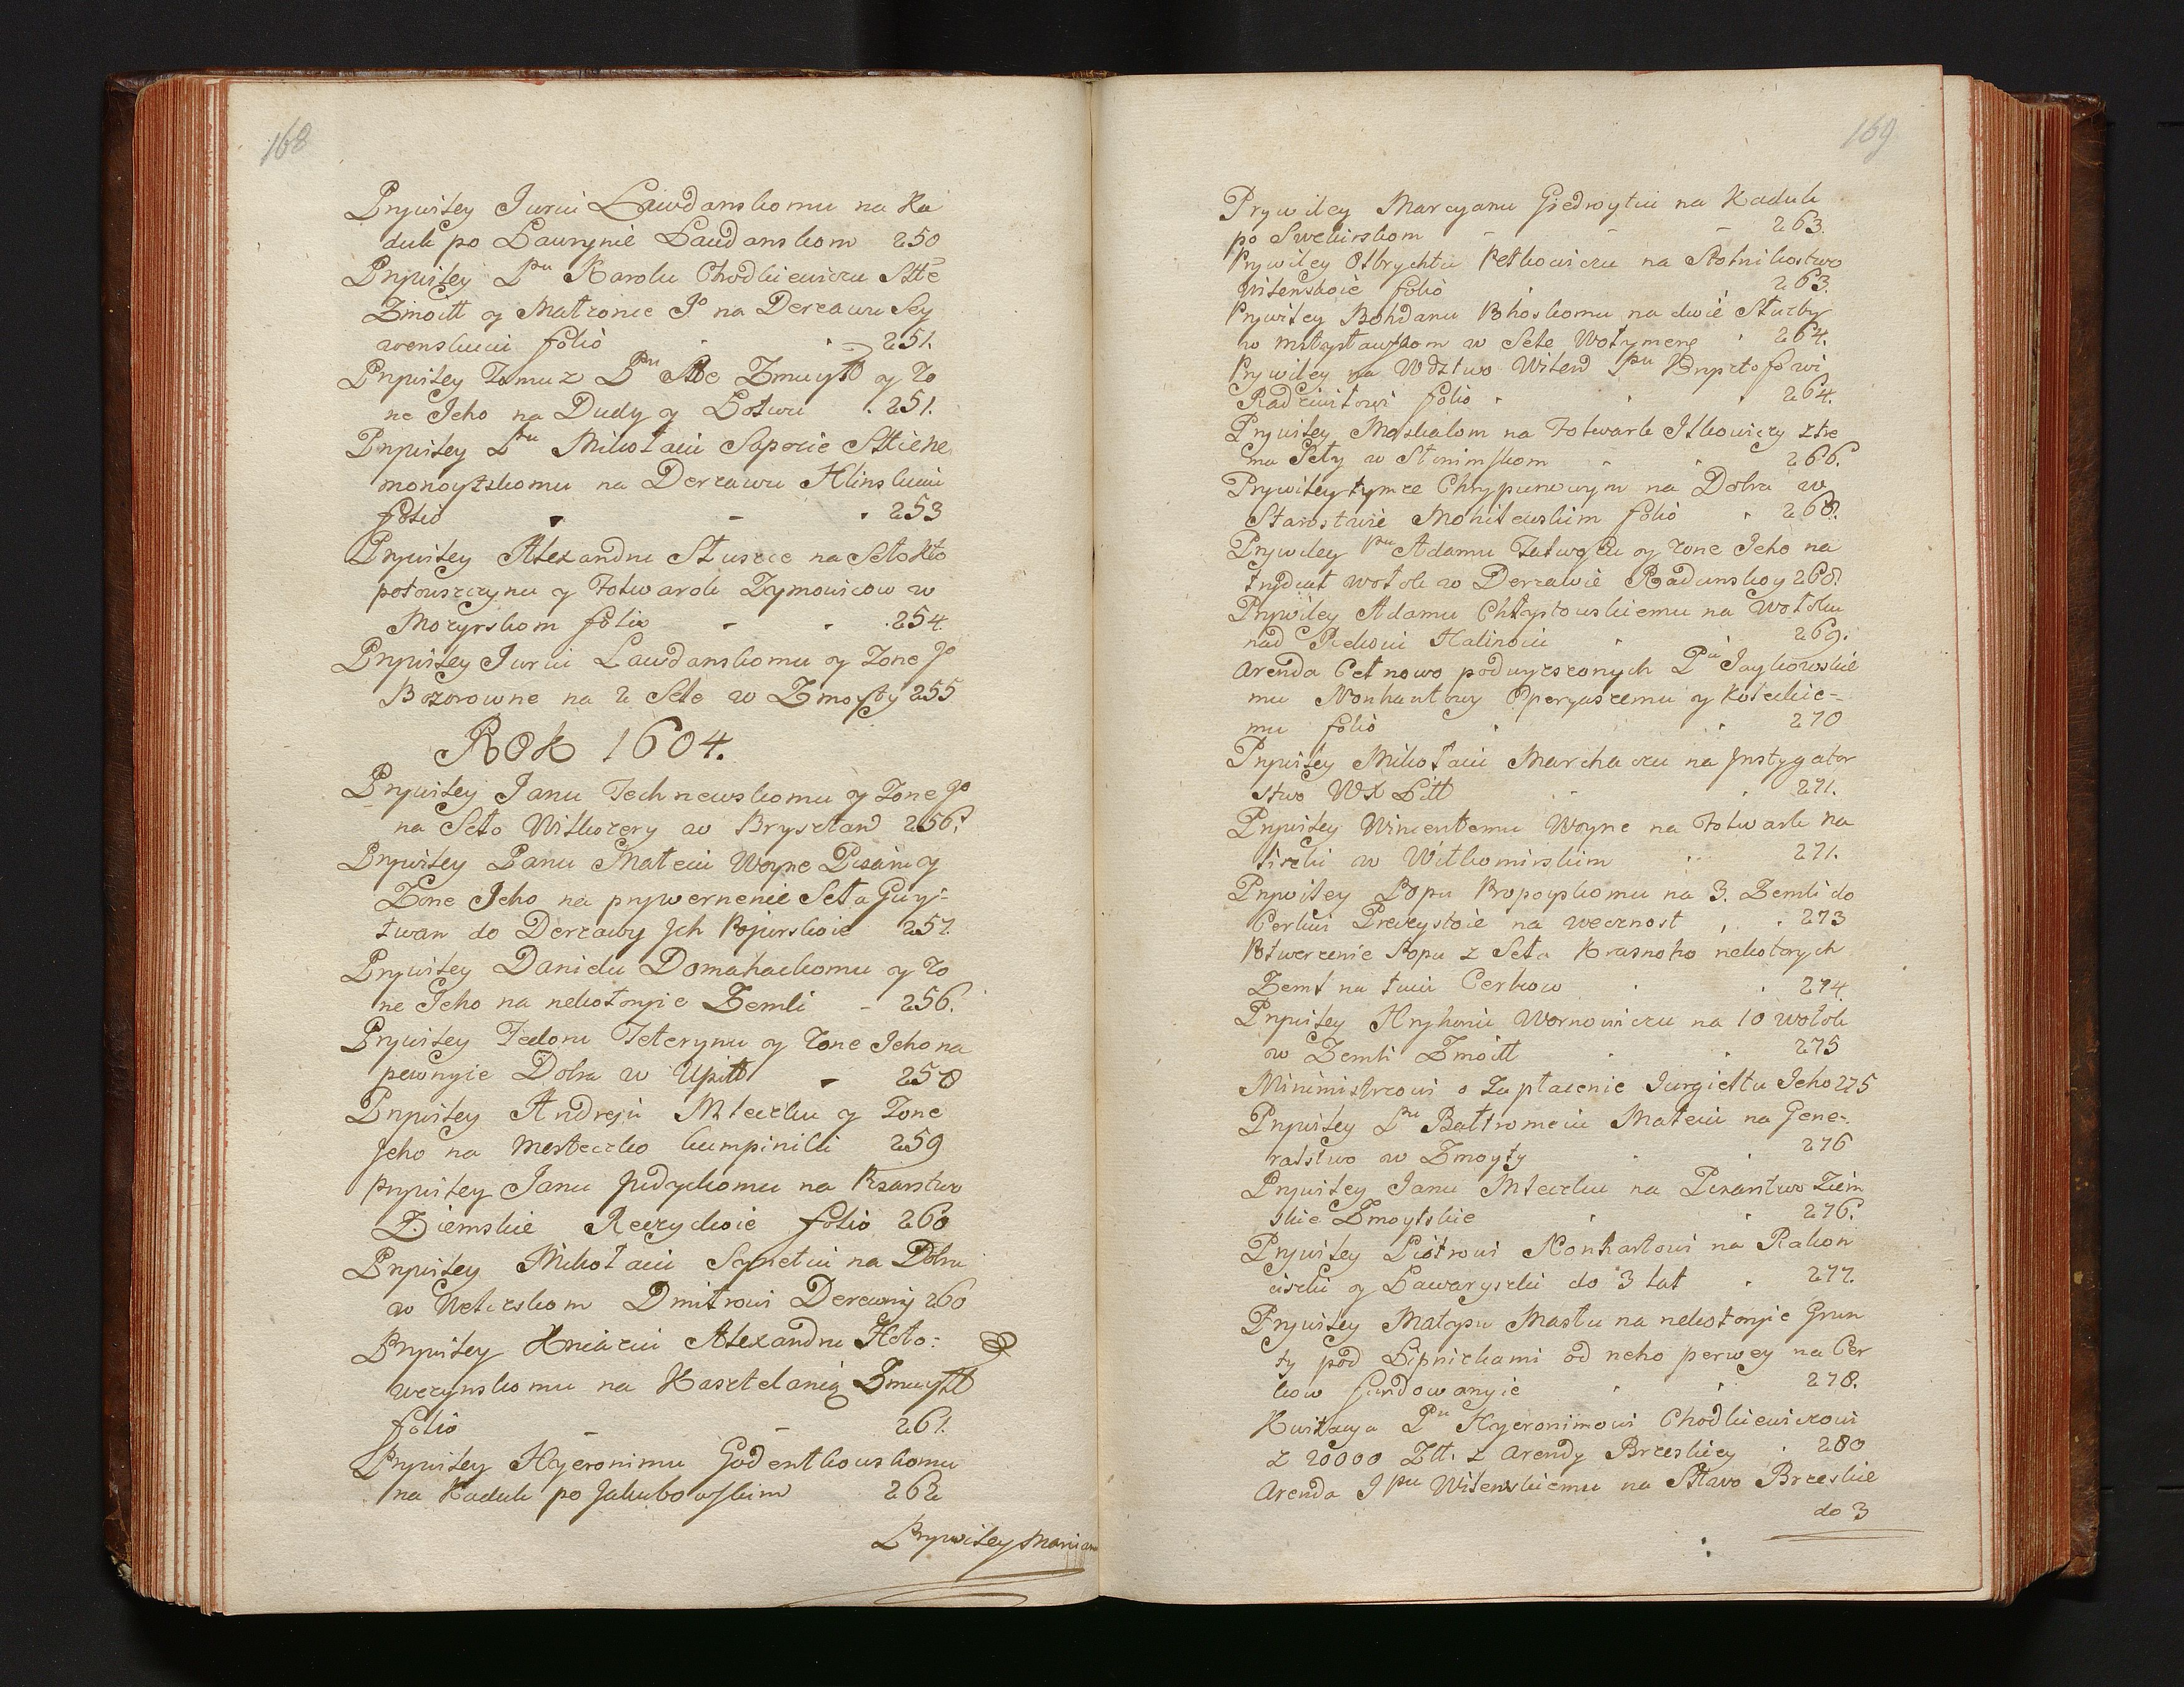 168
Prywiley Juriu Lawdanskomu na Ka
duk po Laurynie Laudanskom 250
Prywiley Pnu Karolu Chodkiewiczu Stte
Zmoitt y Małzonce Jo na Derzawu Sey
wenskuiu folio 251.
Prywiley Tomuz Pnu Stte Zmuyt y Zo
ne Jeho na Dudy y Łotwu 251.
Prywiley Pnu Mikołaiu Sapezie Sttiche
monoytskomu na Derzawu Hlinskuiu
folio 253
Prywiley Alexandru Słuszce na Seło Kło
potowszczynu y Folwarok Zymowicow w
Mozyrskom folio 254
Prywiley Juriu Lawdanskomu y Zone Jo
Bozorowne na 2 Sele w Zmoyty 255
Rok 1604.
Prywiley Janu Technewskomu y Zone Jo
na Seło Witkozery w Brysław 256.
Prywiley Panu Mateiu Woyne Pisaru y
Zone Jeho na prywernenie Seła Guy-
twan do Derzawy Jch Pojurskoie 257.
Prywiley Danielu Domahackomu y Zo
ne Jeho na nekotoryie Zemli - 256.
Prywiley Fedoru Teterynu y Zone Jeho na
pewnyie Dobra w Upitt 258
Prywiley Andreju Mleczku y Zone
Jeho na Mesteczko Kumpiniki 259
Prywiley Janu Judyckomu na Pisarstwo
Ziemskie Reczyckoie folio 260
Prywiley Mikołaiu na Dobra
w Dmitrowi 260
Prywiley Kniaziu Alexandru Hoło:
wczynskomu na Kasztelanią Zmuytt
folio 261.
Prywiley Hyeronimu Godentkowskomu
na Kaduk po Jakubowskim 262
Prywiley Marcian

169
Prywiley Marcyanu Giedroytiu na Kaduk
po Swekirskom - 263.
Prywiley Olbrychtu Petkowiczu na Stolnikostwo
Witenskoie folio 263.
Prywiley Bohdanu Bohoskomu na dwie Służby
w Mstysławskom w Sele Wołymene 264.
Prywiley na Wdztwo Witeb Pnu Krysztofowi
Radziwiłowi folio 264.
Prywiley Moskalom na Folwark Itkowiczy z tre
ma Seły w Słonimskom 266.
Prywiley tymze Chrypunowym na Dobra w
Starostwie Mohilewskim folio 268.
Prywiley Pnu Adamu y Zone Jeho na
trydcat wołok w Derzawie Radunskoy 268.
Prywiley Adamu Chłaptowskiemu na Wołoku
nad Rekoiu Halinoiu 269.
Arenda Ceł nowo podwyzszonych Pnu Jaykowskie
mu Nonhautowy y Kołeckie-
mu folio 270
Prywiley Mikołaiu Marchaczu na Jnstygator
stwo WX Litt 271.
Prywiley Wincentemu Woyne na Folwark na
w Wiłkomirskim 271.
Prywiley Popu Propoyskomu na 3. Zemli do
Cerkwi Preczystoie na wecznost 273
Potwerzenie Popu z Seła Krasnoho nekotorych
Zeml na tuiu Cerkow 274
Prywiley Hryhoriu Wornowiczu na 10 wołok
w Zemli Zmoitt 275
Minimistrzowi o Zapłacenie Jurgiełtu Jeho 275
Prywiley Pnu Bałtromeiu Mateiu na Gene-
ralstwo w Zmoyty 276
Prywiley Janu Mleczku na Pisarstwo Ziem
skie Zmoytskie 276.
Prywiley Piotrowi Nonhartowi na Rakon
ciszki y Ławaryszki do 3 lat 277.
Prywiley Matysu Masłu na nekotoryie Grun
ty pod Lipnickami od neho perwey na Cer
kow fundowanyie 278.
Kwitacya Pnu Hyeronimowi Chodkiewiczowi
z 20000 Złł. z arendy Brzeskiey 280
Arenda J pnu Witenskiemu na Sttwo Brzeskie
do 3